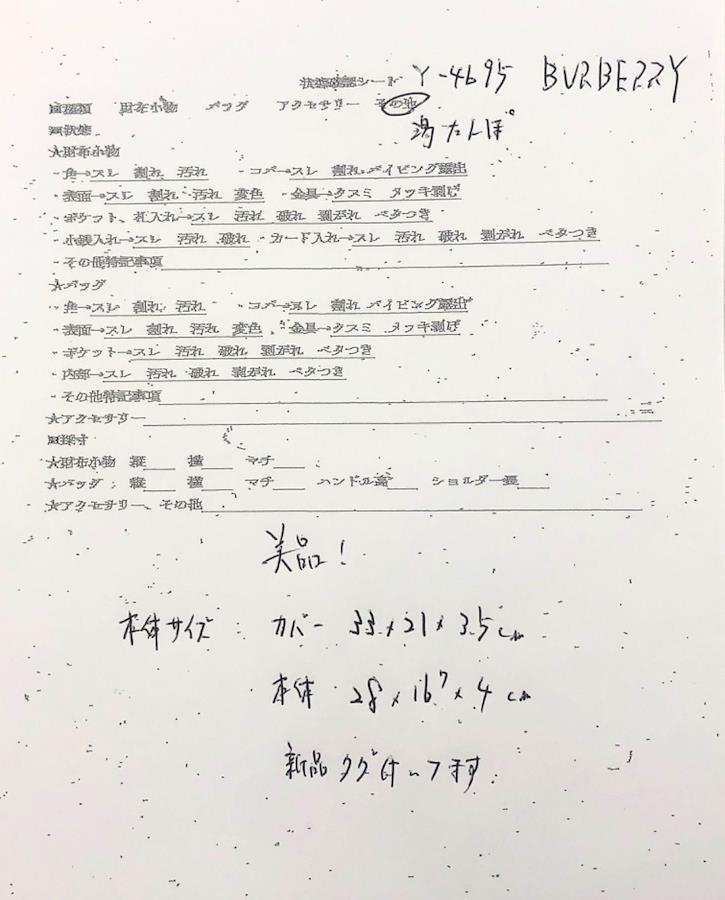 状態確認シート Y-4695 BURBERRY
■種類 財布小物 バッグ アクセサリー その他
■状態 湯たんぽ
★財布小物
・角→スレ 割れ 汚れ ・コバ→スレ 割れ パイピング露出
・表面→スレ 割れ 汚れ 変色 ・金具→クスミ メッキ剥げ
・ポケット、札入れ→スレ 汚れ 破れ 剥がれ ベタつき
・小銭入れ→スレ 汚れ 破れ ・カード入れ→スレ 汚れ 破れ 剥がれ ベタつき
・その他特記事項
★バッグ
・角→スレ 割れ 汚れ ・コバ→スレ 割れ パイピング露出
・表面→スレ 割れ 汚れ 変色 ・金具→クスミ メッキ剥げ
・ポケット→スレ 汚れ 破れ 剥がれ ベタつき
・内部→スレ 汚れ 破れ 剥がれ ベタつき
・その他特記事項
★アクセサリー
■採寸
★財布小物 縦 横 マチ
★バッグ: 縦 横 マチ ハンドル高 ショルダー長
★アクセサリー、その他
美品!
本体サイズ: カバー 33×21×3.5cm
本体 28×16×4cm
新品タグ付いてます